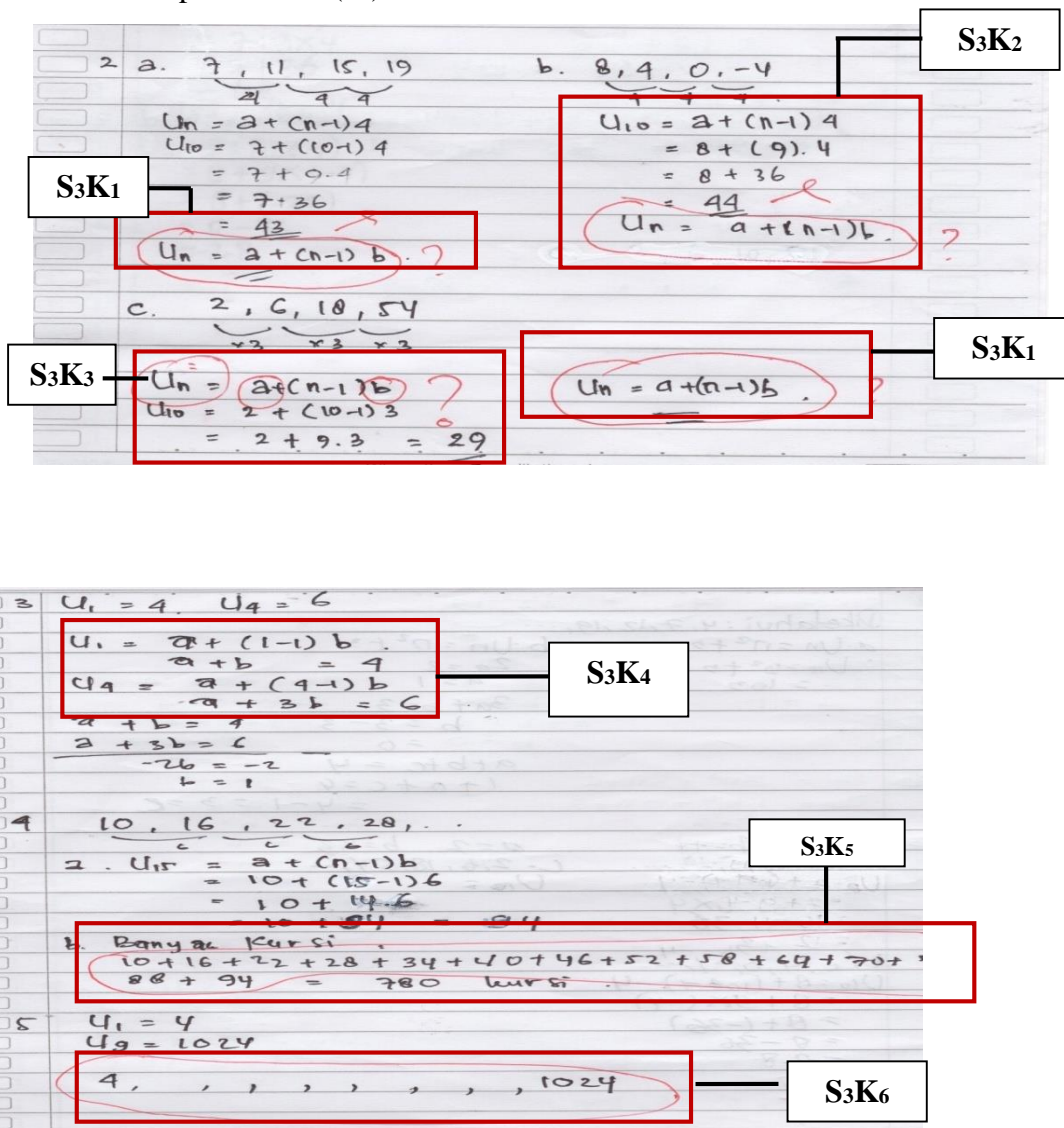 S3K2
2 a. 7, 11, 15, 19
b. 8, 4, 0, -4
4 4 4
4 4 4
Un = a + (n-1) 4
U10 = 7 + (10-1) 4
= 7 + 9.4
= 7 + 36
= 43
Un = a + (n-1) b. ?
S3K1
U10 = a + (n-1) 4
= 8 + (9). 4
= 8 + 36
= 44
Un = a + (n-1)b. ?
c. 2, 6, 18, 54
x3 x3 x3
S3K3
Un = a+(n-1)b ?
U10 = 2 + (10-1) 3
= 2 + 9.3 = 29
Un = a +(n-1)b. ?
S3K1
3 U1 = 4. U4 = 6
U1 = a + (1-1) b.
a + b = 4
U4 = a + (4-1) b
a + 3b = 6
S3K4
a + b = 4
a + 3b = 6
-2b = -2
b = 1
4 10, 16, 22, 28, ..
6 6 6
a. U15 = a + (n-1)b
= 10 + (15-1)6
= 10 + 14.6
= 10 + 84 = 94
S3K5
b. Banyak Kursi.
10+16+22+28+34+40+46+52+58+64+70+
88 + 94 = 780 kursi.
5 U1 = 4
U9 = 1024
4, , , , , , , , 1024
S3K6